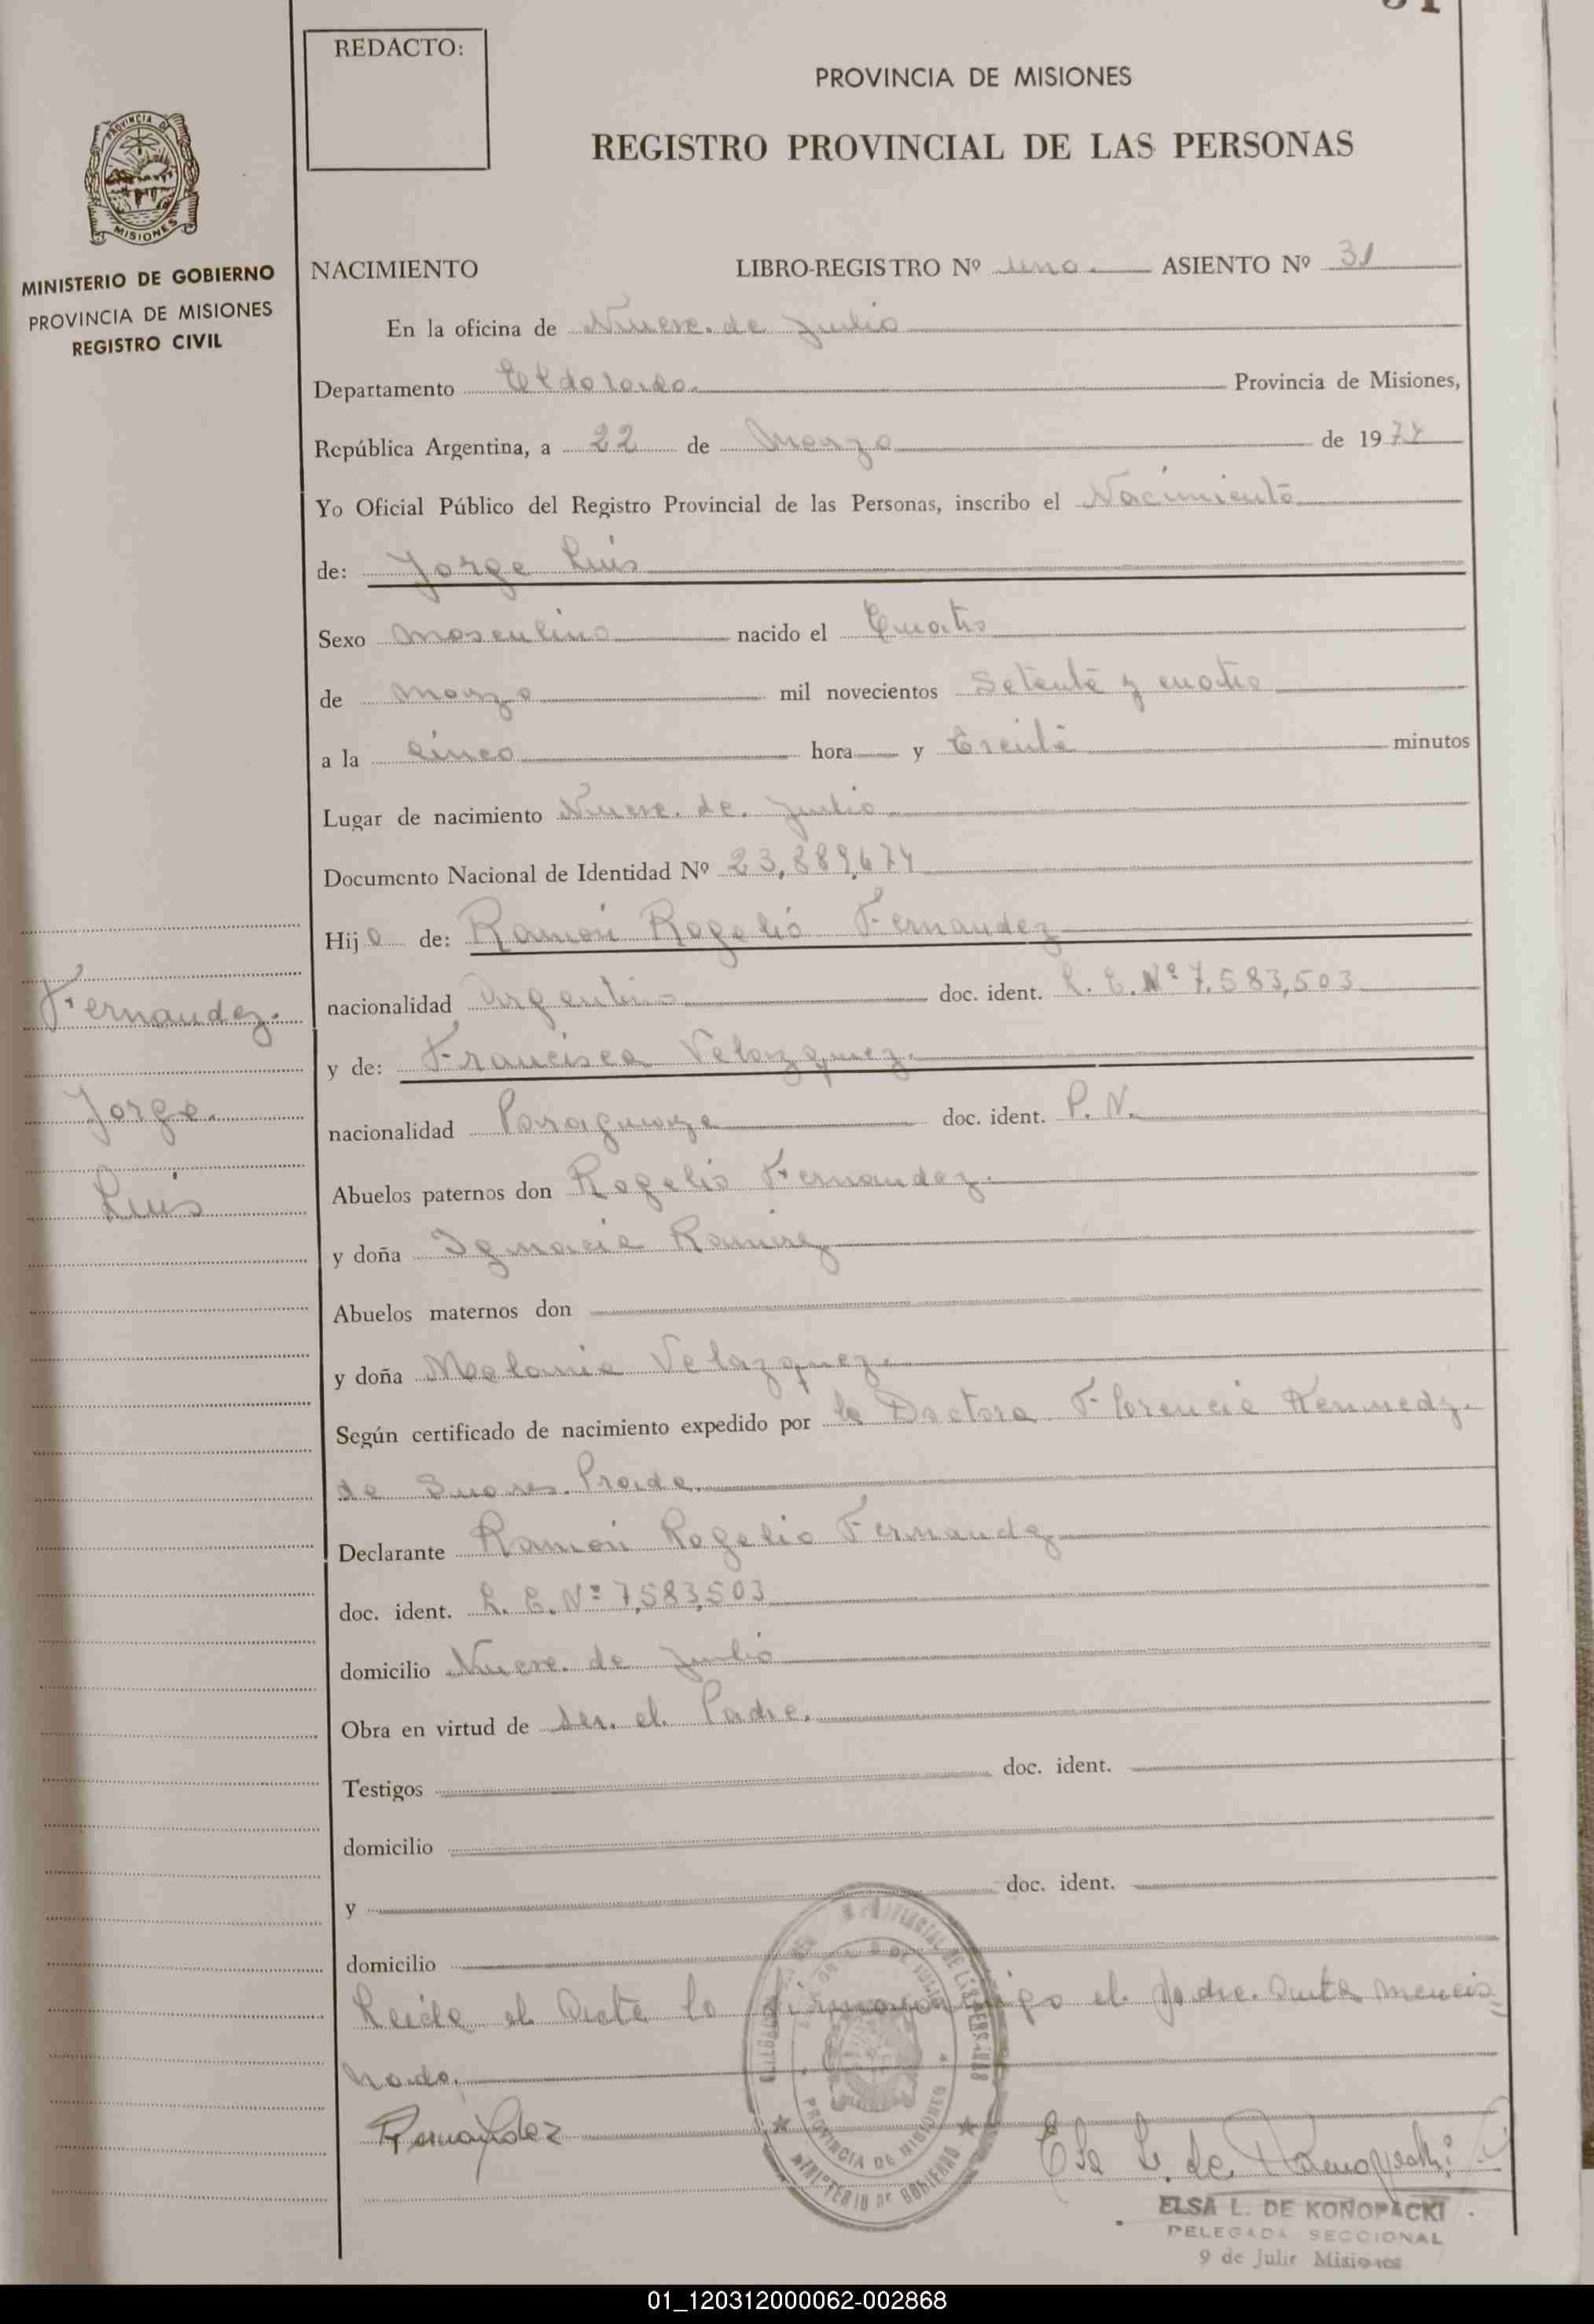 31
REDACTO:
PROVINCIA DE MISIONES
REGISTRO PROVINCIAL DE LAS PERSONAS
PROVINCIA DE
MISIONES
MINISTERIO DE GOBIERNO
PROVINCIA DE MISIONES
REGISTRO CIVIL
NACIMIENTO LIBRO-REGISTRO Nº uno. ASIENTO Nº 31
En la oficina de Nueve de Julio
Departamento Eldorado. Provincia de Misiones,
República Argentina, a 22 de Marzo de 1974
Yo Oficial Público del Registro Provincial de las Personas, inscribo el Nacimiento
de: Jorge Luis
Sexo Masculino nacido el Cuatro
de Marzo mil novecientos Setenta y cuatro
a la cinco hora y treinta minutos
Lugar de nacimiento Nueve de Julio
Documento Nacional de Identidad Nº 23,889,674
Hijo de: Ramón Rogelio Fernandez
nacionalidad Argentino doc. ident. L. E. Nº 7.583,503
y de: Francisca Velazquez.
nacionalidad Paraguaya doc. ident. P. N.
Abuelos paternos don Rogelio Fernandez.
y doña Ignacia Ramirez
Abuelos maternos don
y doña Melania Velazquez.
Según certificado de nacimiento expedido por la Doctora Florencia Kennedy.
de Prada.
Declarante Ramón Rogelio Fernandez
doc. ident. L. E. Nº 7,583,503
domicilio Nueve de Julio
Obra en virtud de ser el Padre.
Testigos doc. ident.
domicilio
y doc. ident.
domicilio
Leida el Acta la firma conmigo el padre antes mencio-
nado.
Fernández
Elsa L. de Konopacki
ELSA L. DE KONOPACKI
DELEGADA SECCIONAL
9 de Julio Misiones
PROVINCIAL DE LAS PERSONAS
PROVINCIA DE MISIONES
MINISTERIO DE GOBIERNO
Fernandez.
Jorge.
Luis
01_120312000062-002868